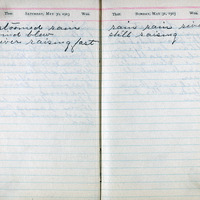 Ther. SATURDAY, MAY 30, 1903 Wea.
stormed rain
and blew
river raising fast
Ther. SUNDAY, MAY 31, 1903 Wea.
rain rain river
still raising